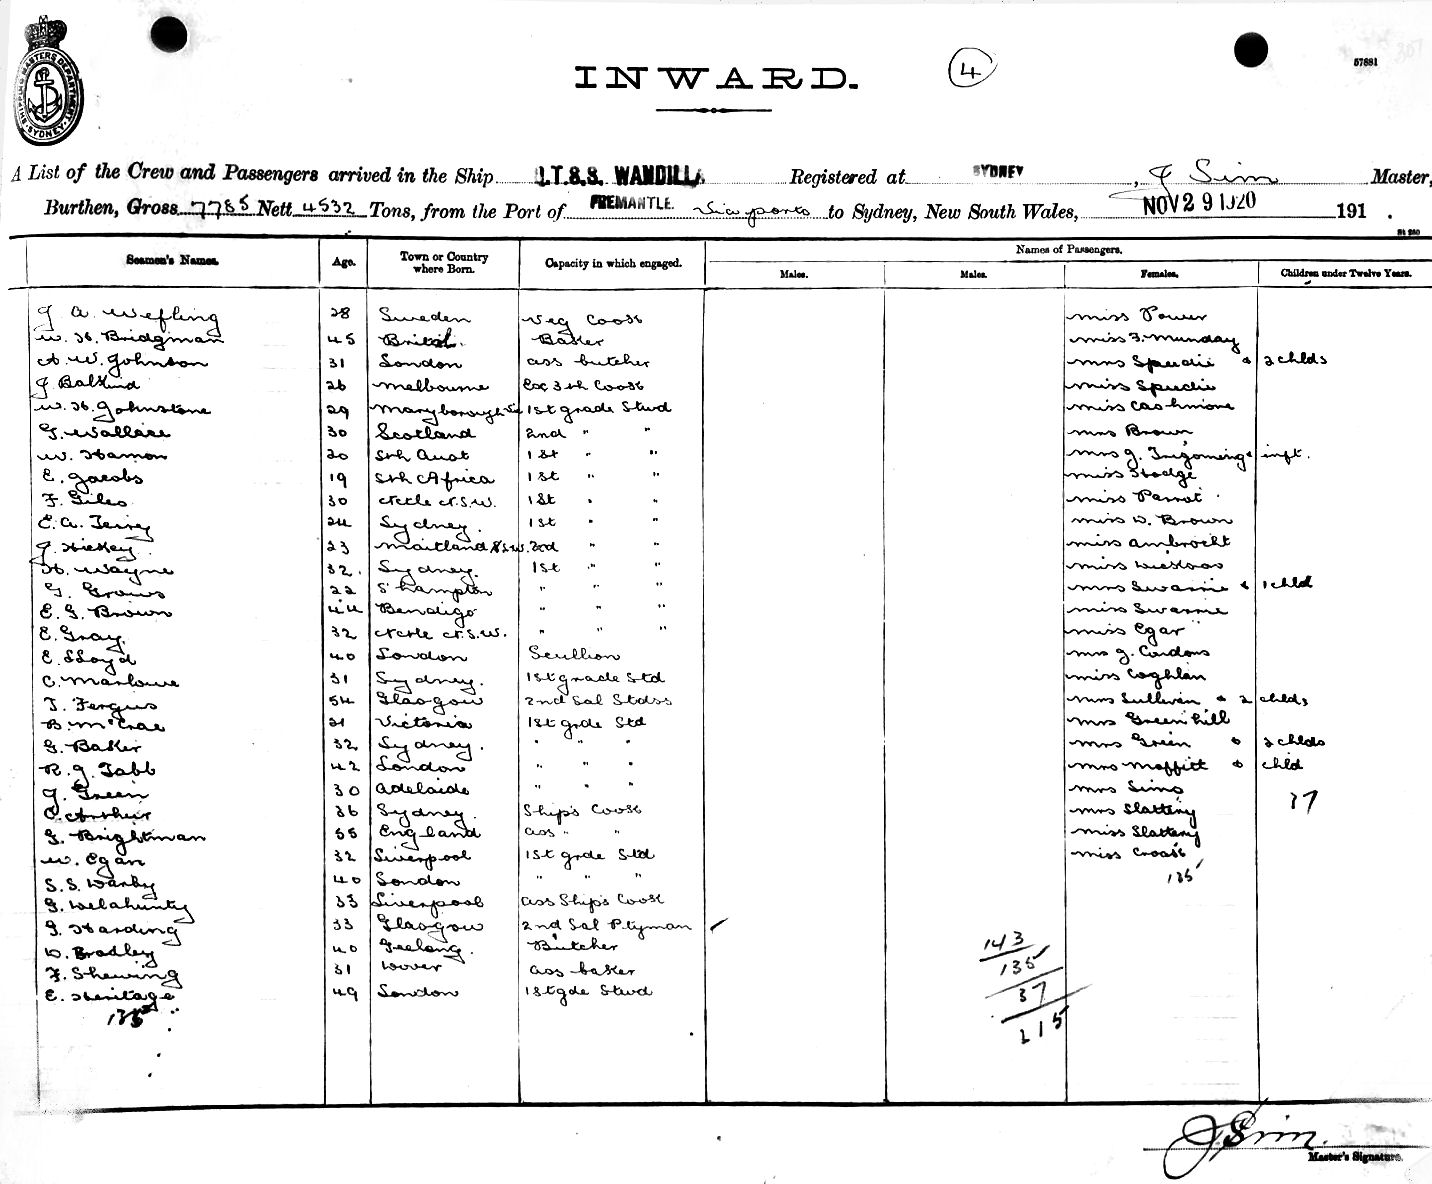 SHIPPING MASTERS DEPARTMENT SYDNEY
INWARD.
4
57881
A List of the Crew and Passengers arrived in the Ship T.S.S. WANDILLA Registered at SYDNEY, J Sim Master,
Burthen, Gross 7785 Nett 4532 Tons, from the Port of FREMANTLE. via ports to Sydney, New South Wales, NOV 29 1920 191 .
Seamen's Names. Age. Town or Country where Born. Capacity in which engaged. Names of Passengers.
Males. Males. Females. Children under Twelve Years.
J A Wefling 28 Sweden Veg Cook Miss Power
W. H. Bridgman 45 Bristol. Baker Miss F. Munday
A. W. Johnson 31 London ass butcher Mrs Speedie & 2 chlds
J Balkind 26 Melbourne 3rd Cook Miss Speedie
W. H. Johnstone 29 Maryborough Vic 1st grade Stwd Miss Cashmore
G. Wallace 30 Scotland 2nd " " Mrs Brown
W. Hamon 20 Sth Aust 1st " " Mrs J. & inft.
E. Jacobs 19 Sth Africa 1st " " Miss Hodge
F. Giles 30 N.S.W. 1st " " Miss Parrot
E. A. Terry 24 Sydney. 1st " " Miss D. Brown
J. Hickey 23 Maitland N.S.W. 2nd " " Miss Ambrocht
H. Wayne 32. Sydney. 1st " " Miss
G. 22 S'hampton " " " Mrs Swannie & 1 chld
E. G. Brown 44 Bendigo " " " Miss Swannie
E. Gray 32 N.S.W. " " " Miss Egar
E. Lloyd 40 London Scullion Mrs J.
C. Marlowe 31 Sydney. 1st grade Std Miss Coghlan
T. Fergus 54 Glasgow 2nd Sal Stdss Mrs Sullivan & 2 chlds
B. McCrae 21 Victoria 1st grde Std Mrs Greenhill
G. Baker 32 Sydney. " " " Mrs Green & 2 chlds
R. J. Tabb 42 London " " " Mrs Moffitt & chld
J. Green 30 Adelaide " " " Mrs Sims
C. Arthur 36 Sydney. Ship's Cook Mrs Slattery 37
G. Brightman 55 England ass " " Miss Slattery
W. Egan 32 Liverpool 1st grde Std Miss Croak
S. S. Wanby 40 London " " " 135
G. Delahunty 33 Liverpool ass Ship's Cook
G. Harding 33 Glasgow 2nd Sal Ptyman
D. Bradley 40 Geelong. Butcher 143
F. Shewing 31 Dover ass baker 135
E. Heritage 49 London 1st gde Stwd 37
135 315
J Sim.
Master's Signature.